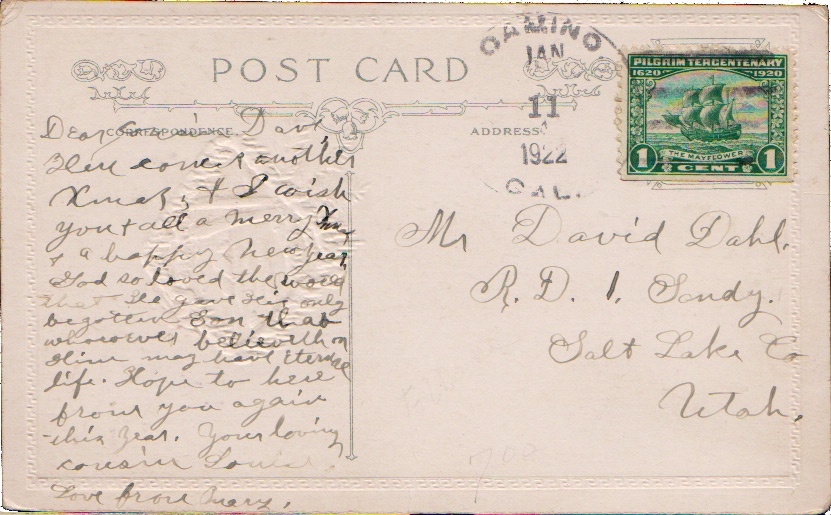 POST CARD
CORRESPONDENCE
ADDRESS
CAMINO
JAN
11
1922
CAL.
PILGRIM TERCENTENARY
1620 1920
THE MAYFLOWER
1 CENT 1
Dear Dave,
Here comes another
Xmas, & I wish
you & all a merry Xmas
& a happy New year,
God so loved the world
that He gave His only
begotten Son that
whosoever believeth on
Him may have eternal
life. Hope to here
from you again
this year. Your loving
cousin Louise.
Love from Mary,
Mr David Dahl.
R. D. 1, Sandy.
Salt Lake Co
Utah.